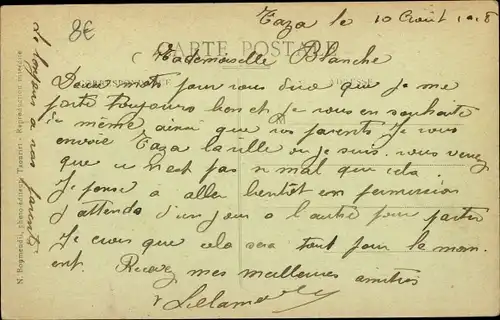 8€
Taza le 10 Août 1918
CARTE POSTALE
Mademoiselle Blanche
CORRESPONDANCE ADRESSE
Deux mots pour vous dire que je me
porte toujours bon et je vous en souhaite
de même ainsi que vos parents Je vous
envoie Taza la ville ou je suis. vous verrez
que ce n'est pas mal que cela
Je pense a aller bientôt en permission
J'attends d'un jour a l'autre pour partir
Je crois que cela sera tout pour le mom
ent. Recevez mes meilleures amitiés
Le bonjour a vos parents
N. Boumendil, photo-éditeur, Taourirt - Reproduction interdite